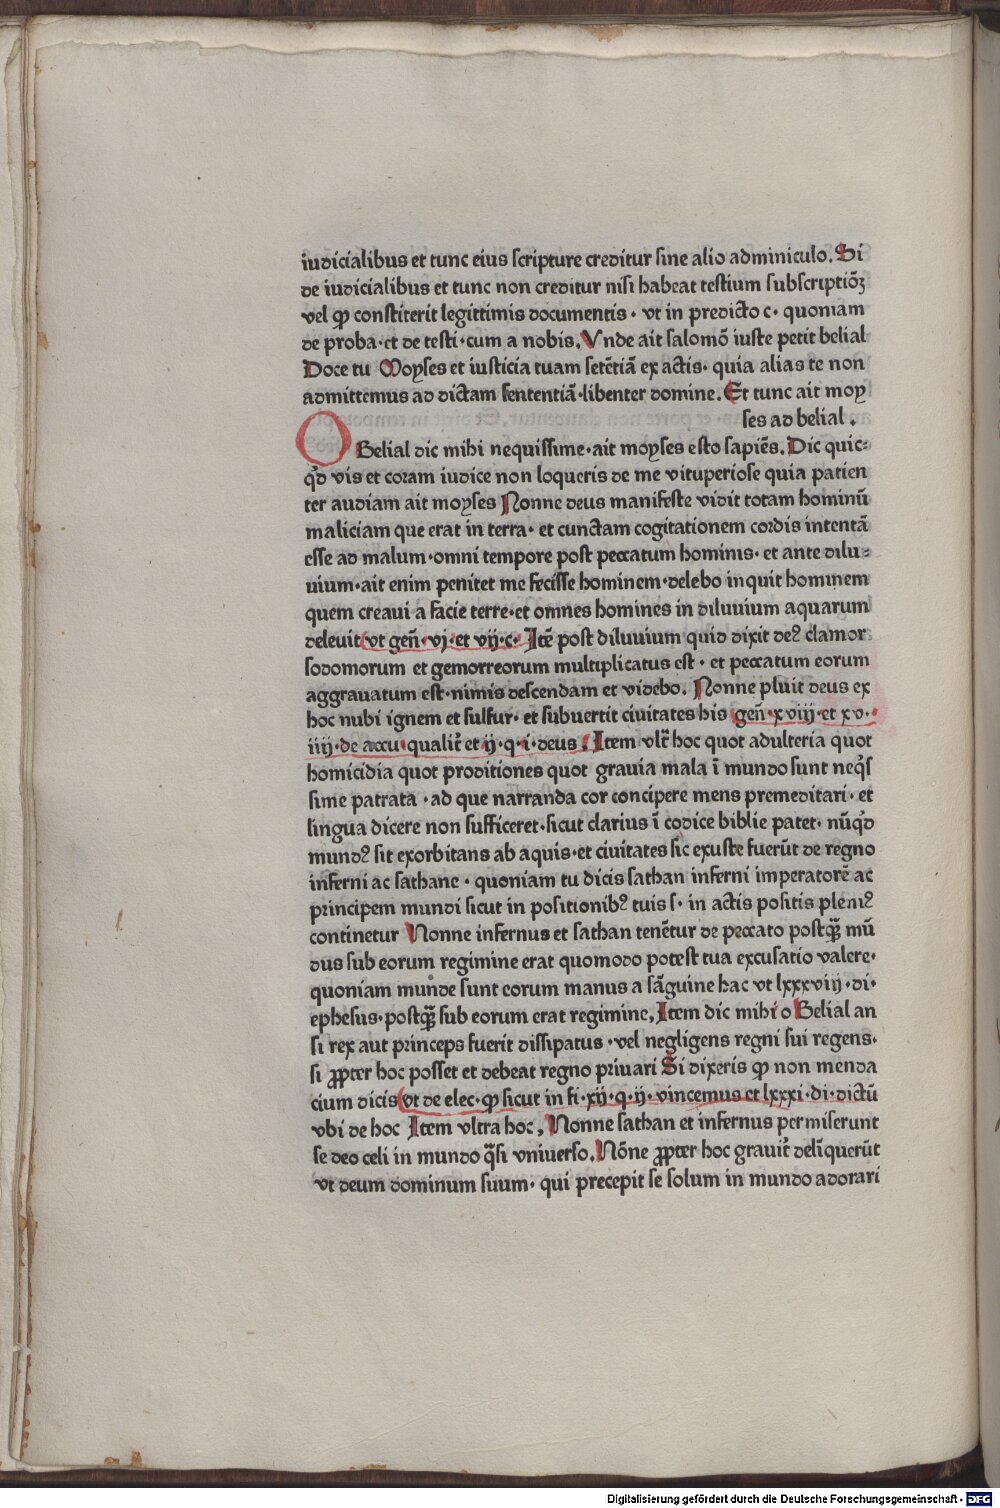 iudicialibus et tunc eius scripture creditur sine alio adminiculo. Si
de iudicialibus et tunc non creditur nisi habeat testium subscriptiōꝫ
vel ꝙ constiterit legittimis documentis · vt in predicto c · quoniam
de proba · et de testi · cum a nobis. Vnde ait salomō iuste petit belial
Doce tu Moyses et iusticia tuam setētiā ex actis · quia alias te non
admittemus ad dictam sententiā · libenter domine. Et tunc ait moy
ses ad belial .
O Belial dic mihi nequissime · ait moyses esto sapiēs. Dic quic⸗
qď vis et coram iudice non loqueris de me vituperiose quia patien
ter audiam ait moyses Nonne deus manifeste vidit totam hominū
maliciam que erat in terra · et cunctam cogitationem cordis intentā
esse ad malum · omni tempore post peccatum hominis · et ante dilu⸗
uium · ait enim penitet me fecisse hominem · delebo inquit hominem
quem creaui a facie terre · et omnes homines in diluuium aquarum
deleuit vt geñ · vj · et vij · c · Itē post diluuium quid dixit deꝰ clamor
sodomorum et gemorreorum multiplicatus est · et peccatum eorum
aggrauatum est · nimis descendam et videbo. Nonne pluit deus ex
hoc nubi ignem et sulfur · et subuertit ciuitates his geñ · xviij · et xv ·
iiij · de accu · qualit̄ et ij · q · i · deus. Item vlt̄ hoc quot adulteria quot
homicidia quot proditiones quot grauia mala ī mundo sunt neq̄s
sime patrata · ad que narranda cor concipere mens premeditari · et
lingua dicere non sufficeret · sicut clarius ī codice biblie patet · nūqď
mundꝰ sit exorbitans ab aquis · et ciuitates sic exuste fuerūt de regno
inferni ac sathane · quoniam tu dicis sathan inferni imperatorē ac
principem mundi sicut in positionibꝰ tuis s · in actis positis pleniꝰ
continetur Nonne infernus et sathan tenētur de peccato postꝗ̄ mū
dus sub eorum regimine erat quomodo potest tua excusatio valere ·
quoniam munde sunt eorum manus a sāguine hac vt lxxxviij · di ·
ephesus · postꝗ̄ sub eorum erat regimine, Item dic mihi o Belial an
si rex aut princeps fuerit dissipatus · vel negligens regni sui regens ·
si ꝓpter hoc posset et debeat regno priuari Si dixeris ꝙ non menda
cium dicis vt de elec · ꝙ sicut in fi · xij · q · ij · vincemus et lxxxi · di · dictū
vbi de hoc Item vltra hoc, Nonne sathan et infernus permiserunt
se deo celi in mundo q̄si vniuerso. Nōne ꝓpter hoc grauit̄ deliquerūt
vt deum dominum suum · qui precepit se solum in mundo adorari
Digitalisierung gefördert durch die Deutsche Forschungsgemeinschaft - DFG